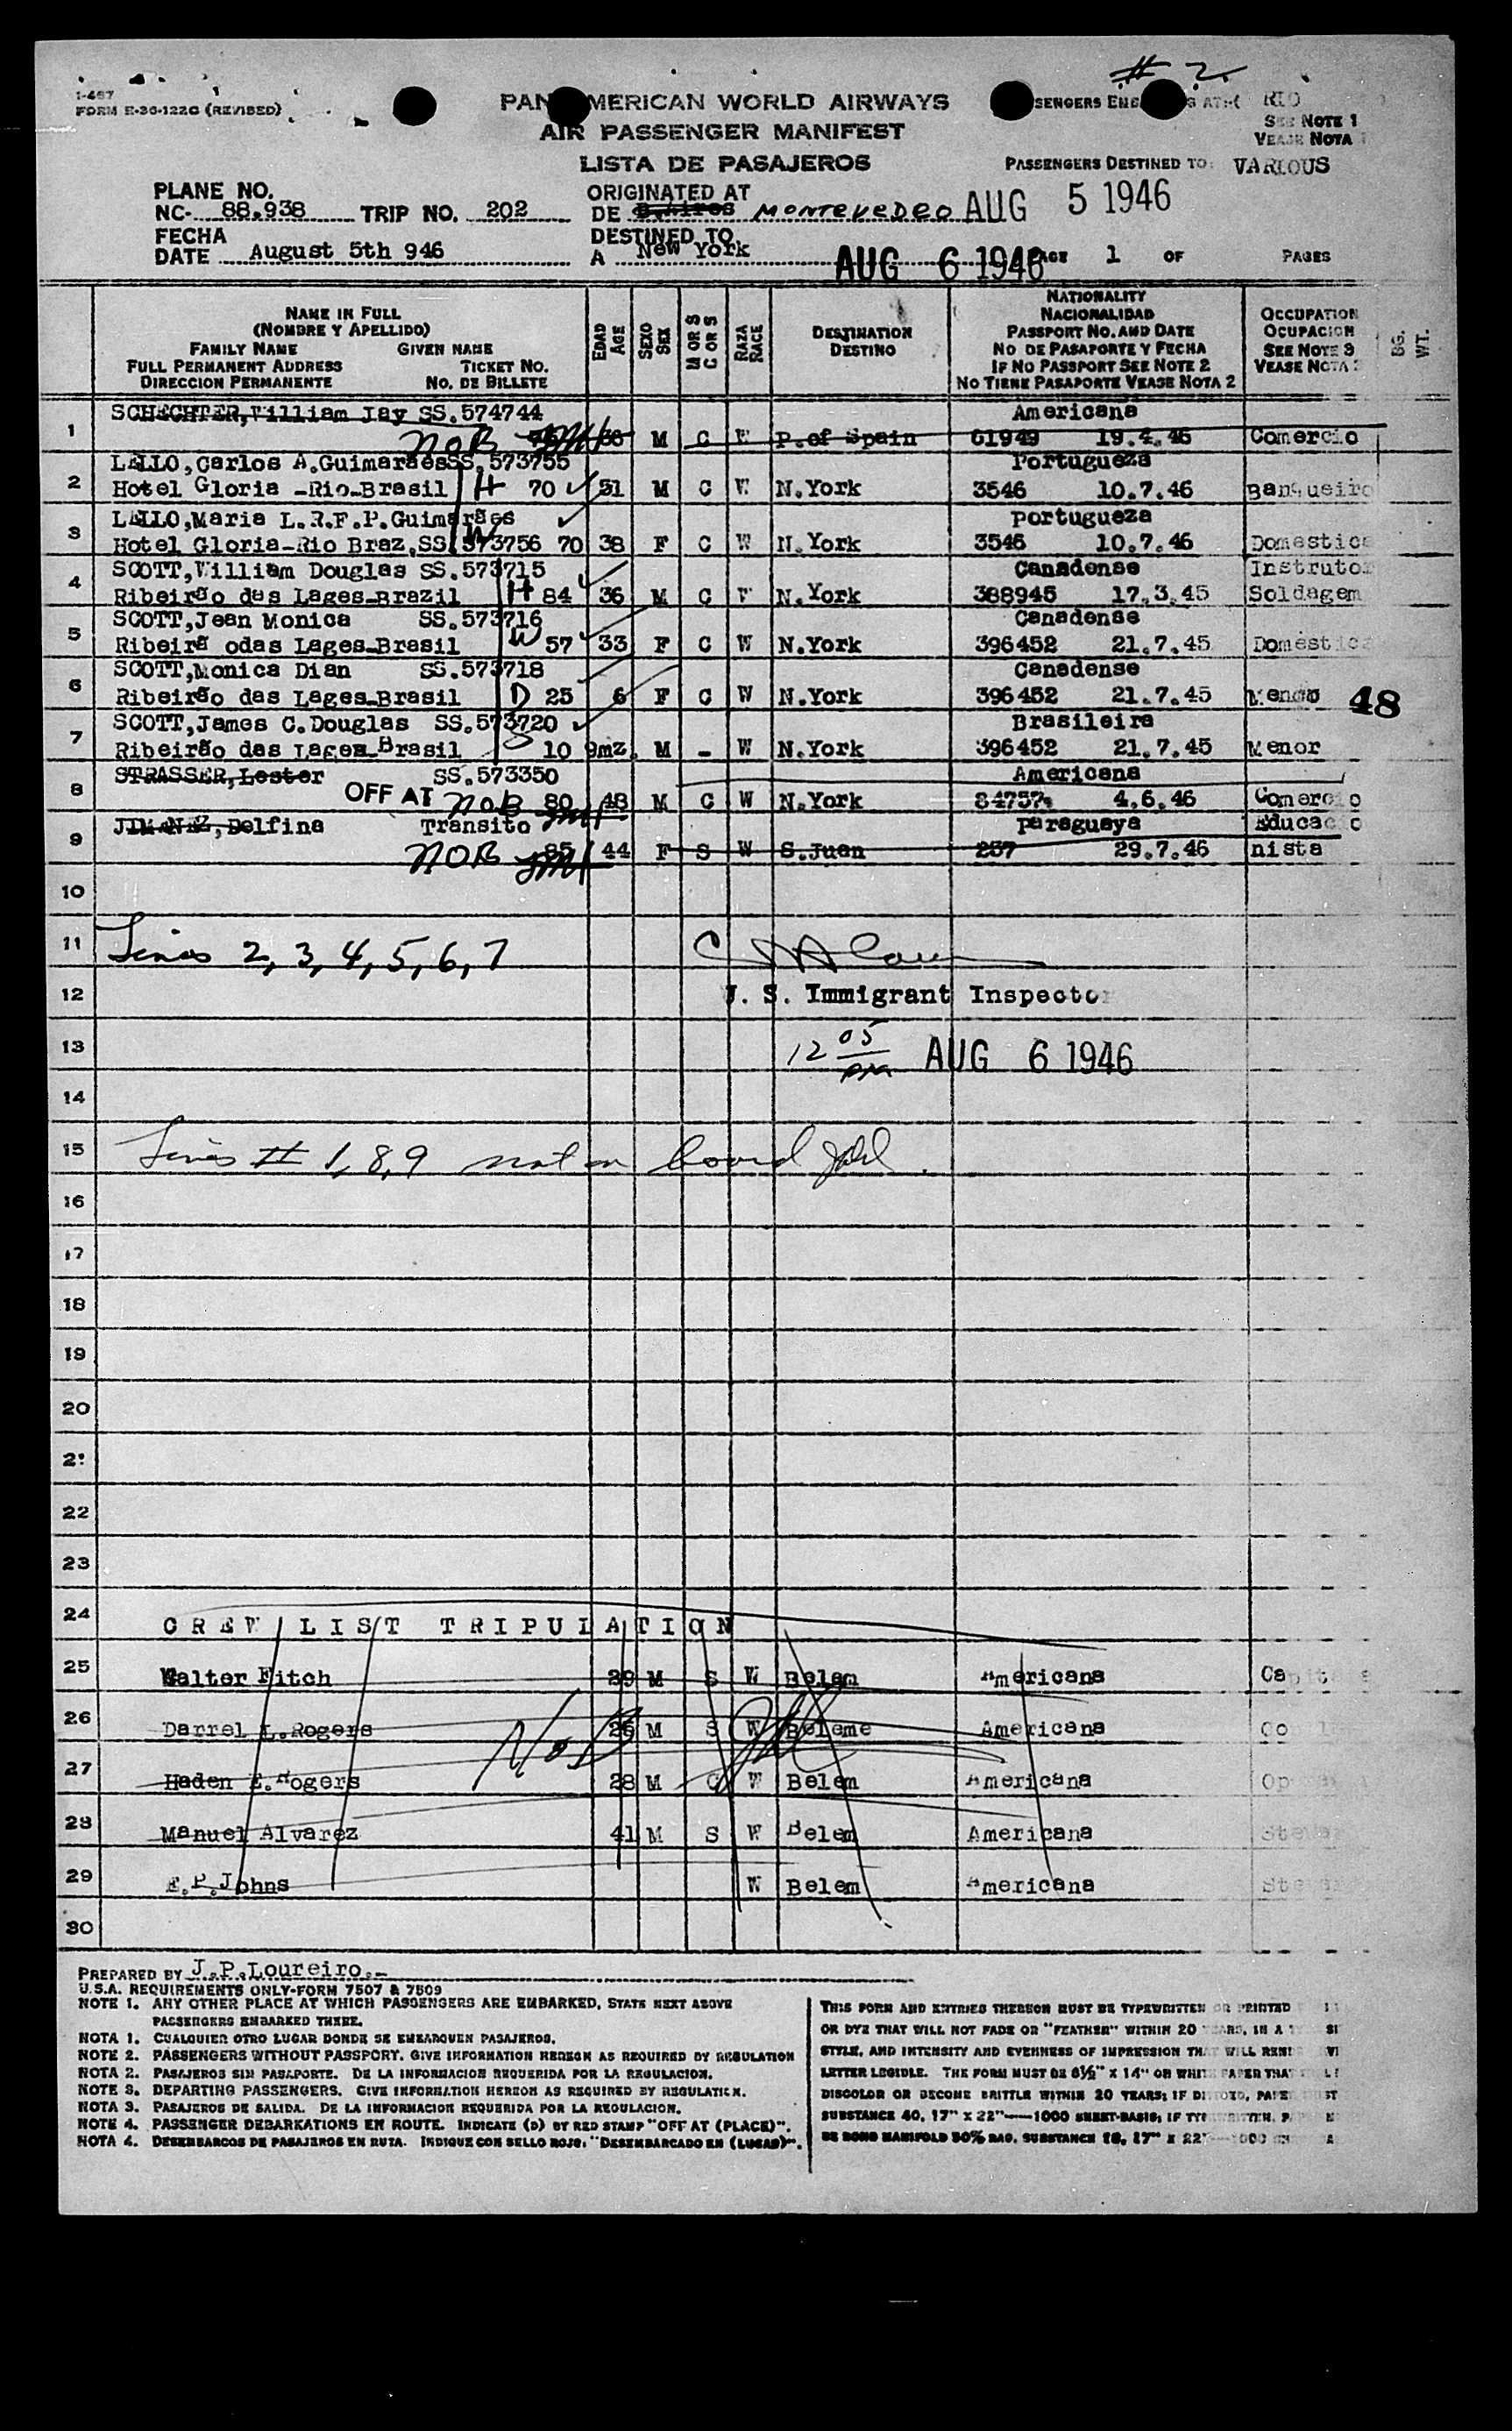 # 2
I-467
FORM E-36-122G (REVISED)
PAN AMERICAN WORLD AIRWAYS
AIR PASSENGER MANIFEST
LISTA DE PASAJEROS
RIO
SEE NOTE 1
VEASE NOTA
PASSENGERS DESTINED TO: VARIOUS
PLANE NO.
NC- 88.938 TRIP NO. 202
ORIGINATED AT
DE B.Aires Montevedeo AUG 5 1946
FECHA
DATE August 5th 946
DESTINED TO
A New York
AUG 6 1946
PAGE 1 OF PAGES
NAME IN FULL
(NOMBRE Y APELLIDO)
FAMILY NAME GIVEN NAME
FULL PERMANENT ADDRESS TICKET NO.
DIRECCION PERMANENTE NO. DE BILLETE
EDAD
AGE
SEXO
SEX
M OR S
C OR S
RAZA
RACE
DESTINATION
DESTINO
NATIONALITY
NACIONALIDAD
PASSPORT NO. AND DATE
NO DE PASAPORTE Y FECHA
IF NO PASSPORT SEE NOTE 2
NO TIENE PASAPORTE VEASE NOTA 2
OCCUPATION
OCUPACION
SEE NOTE 3
VEASE NOTA 3
BG.
WT.
SCHECHTER,William Jay SS.574744 Americana
1 NOB M C W P.of Spain 61949 19.4.46 Comercio
LELLO,Carlos A.GuimarãesSS.573755 Portugueza
2 Hotel Gloria -Rio-Brasil H 70 51 M C W N.York 3546 10.7.46 Banqueiro
LELLO,Maria L.R.F.P.Guimarães Portugueza
3 Hotel Gloria-Rio Braz.SS.573756 W 70 38 F C W N.York 3546 10.7.46 Domestica
SCOTT,William Douglas SS.573715 Canadense Instrutor
4 Ribeirão das Lages-Brazil H 84 36 M C W N.York 388945 17.3.45 Soldagem
SCOTT,Jean Monica SS.573716 Canadense
5 Ribeirã odas Lages-Brasil W 57 33 F C W N.York 396452 21.7.45 Domestica
SCOTT,Monica Dian SS.573718 Canadense
6 Ribeirão das Lages-Brasil D 25 6 F C W N.York 396452 21.7.45 Menor 48
SCOTT,James C.Douglas SS.573720 Brasileira
7 Ribeirão das Lages-Brasil S 10 9mz. M - W N.York 396452 21.7.45 Menor
STRASSER,Lester SS.573350 Americana
8 OFF AT NOB 80 48 M C W N.York 84757 4.6.46 Comercio
JIMANEZ,Delfina Transito Paraguaya Educacio
9 NOB 85 44 F S W S.Juan 257 29.7.46 nista
10
11 Lines 2, 3, 4, 5, 6, 7
12 U. S. Immigrant Inspector
13 12 05 PM AUG 6 1946
14
15 Lines # 1, 8, 9 not on board
16
17
18
19
20
21
22
23
24 CREW LIST TRIPULATION
25 Walter Fitch 29 M S W Belem Americana
26 Darrel L.Rogers 26 M S W Beleme Americana
NOB
27 Haden E.Rogers 28 M C W Belem Americana
28 Manuel Alvarez 41 M S W Belem Americana
29 E.P.Johns W Belem Americana
30
PREPARED BY J.P.Loureiro.-
U.S.A. REQUIREMENTS ONLY-FORM 7507 & 7509
NOTE 1. ANY OTHER PLACE AT WHICH PASSENGERS ARE EMBARKED, STATE NEXT ABOVE
PASSENGERS EMBARKED THERE.
NOTA 1. CUALQUIER OTRO LUGAR DONDE SE EMBARQUEN PASAJEROS.
NOTE 2. PASSENGERS WITHOUT PASSPORT. GIVE INFORMATION HEREON AS REQUIRED BY REGULATION
NOTA 2. PASAJEROS SIN PASAPORTE. DE LA INFORMACION REQUERIDA POR LA REGULACION.
NOTE 3. DEPARTING PASSENGERS. GIVE INFORMATION HEREON AS REQUIRED BY REGULATION.
NOTA 3. PASAJEROS DE SALIDA. DE LA INFORMACION REQUERIDA POR LA REGULACION.
NOTE 4. PASSENGER DEBARKATIONS EN ROUTE. INDICATE (D) BY RED STAMP "OFF AT (PLACE)".
NOTA 4. DESEMBARCOS DE PASAJEROS EN RUTA. INDIQUE CON SELLO ROJO: "DESEMBARCADO EN (LUGAR)".
THIS FORM AND ENTRIES THEREON MUST BE TYPEWRITTEN OR PRINTED
OR DYE THAT WILL NOT FADE OR "FEATHER" WITHIN 20 YEARS, IN A
STYLE, AND INTENSITY AND EVENNESS OF IMPRESSION THAT WILL
LETTER LEGIBLE. THE FORM MUST BE 8½" X 14" ON WHITE PAPER THAT
DISCOLOR OR BECOME BRITTLE WITHIN 20 YEARS; IF
SUBSTANCE 40, 17" X 22"—1000 SHEET-BASIS; IF TYPEWRITTEN,
BE BOND MANIFOLD 50% RAG, SUBSTANCE 16, 17" X 22"—1000